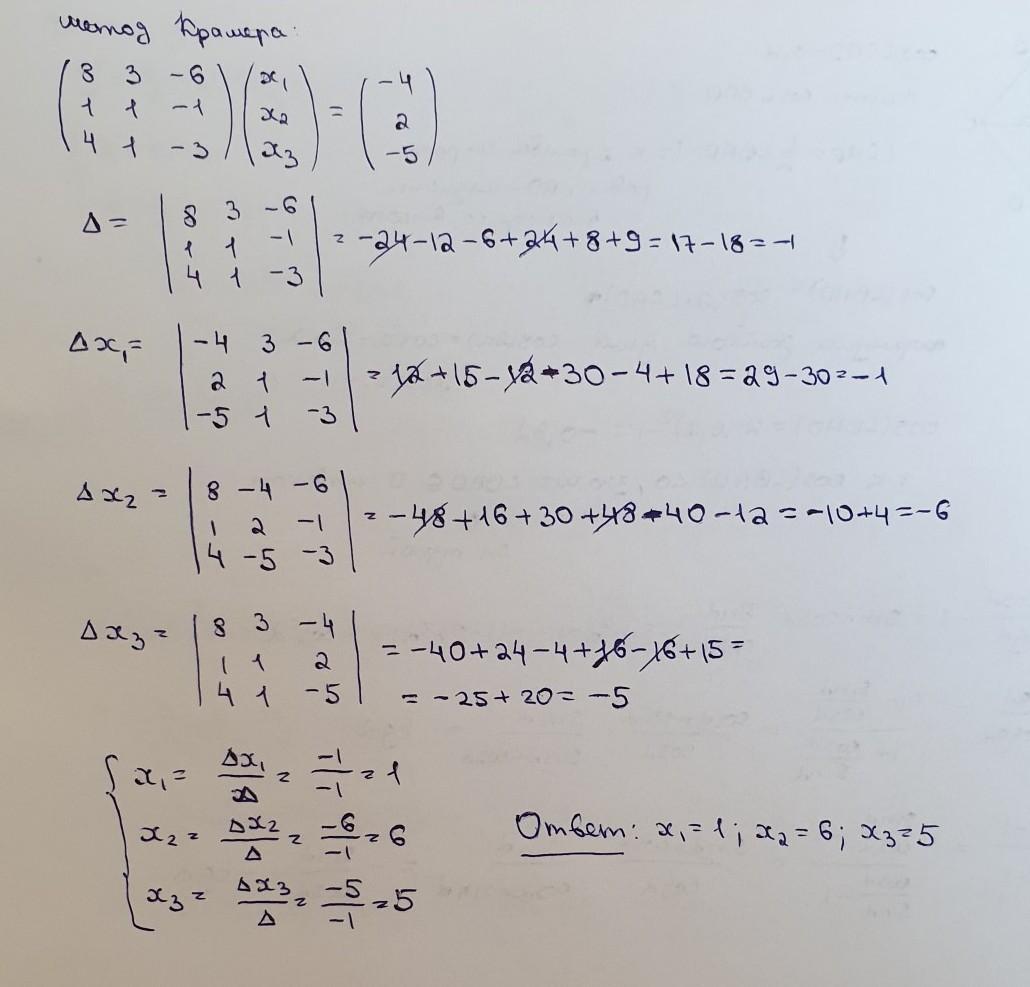 метод Крамера:
( 8 3 -6 ) ( x₁ ) = ( -4 )
( 1 1 -1 ) ( x₂ ) = ( 2 )
( 4 1 -3 ) ( x₃ ) = ( -5 )
Δ = | 8 3 -6 |
| 1 1 -1 | = -24-12-6+24+8+9 = 17-18 = -1
| 4 1 -3 |
Δx₁ = | -4 3 -6 |
| 2 1 -1 | = 12+15-12-30-4+18 = 29-30 = -1
| -5 1 -3 |
Δx₂ = | 8 -4 -6 |
| 1 2 -1 | = -48+16+30+48-40-12 = -10+4 = -6
| 4 -5 -3 |
Δx₃ = | 8 3 -4 |
| 1 1 2 | = -40+24-4+16-16+15 =
| 4 1 -5 | = -25+20 = -5
x₁ = Δx₁/Δ = -1/-1 = 1
x₂ = Δx₂/Δ = -6/-1 = 6
x₃ = Δx₃/Δ = -5/-1 = 5
Ответ: x₁=1; x₂=6; x₃=5